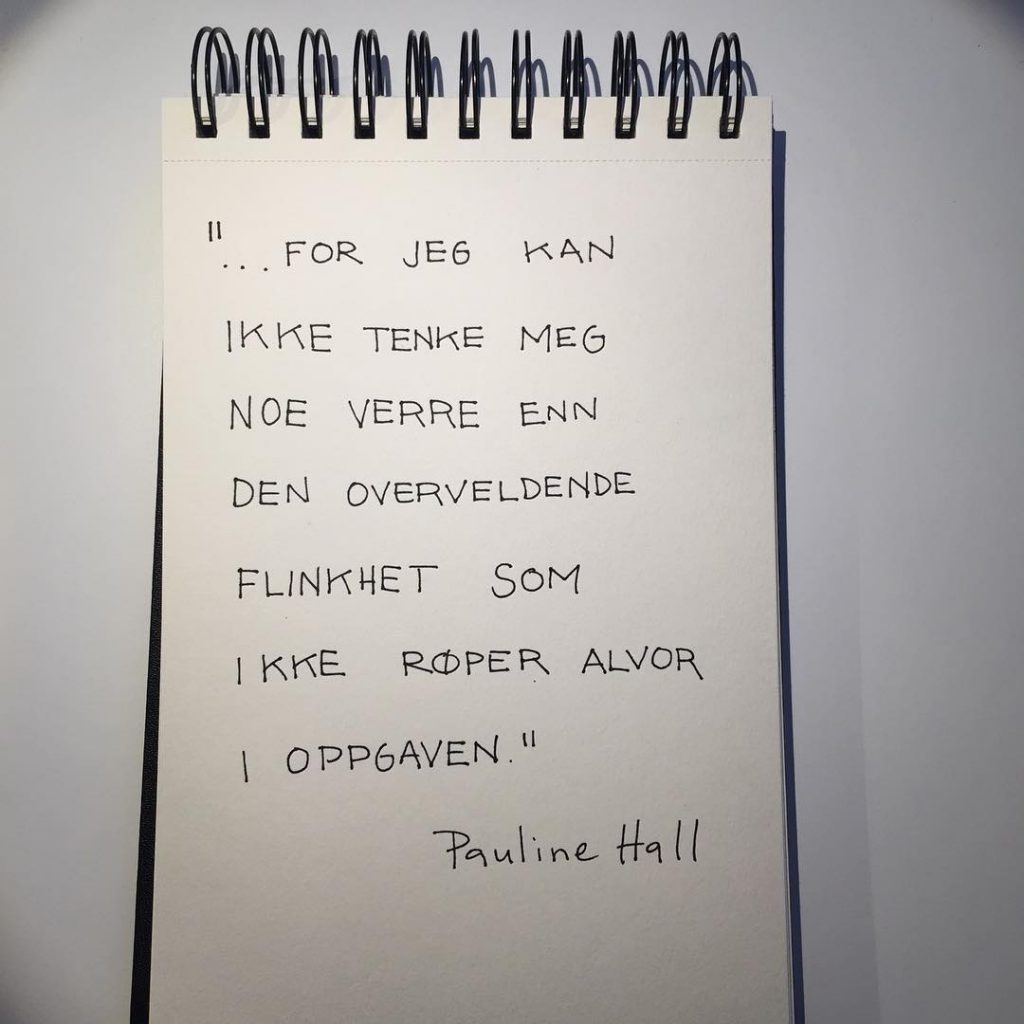 "...FOR JEG KAN
IKKE TENKE MEG
NOE VERRE ENN
DEN OVERVELDENDE
FLINKHET SOM
IKKE RØPER ALVOR
I OPPGAVEN."
Pauline Hall